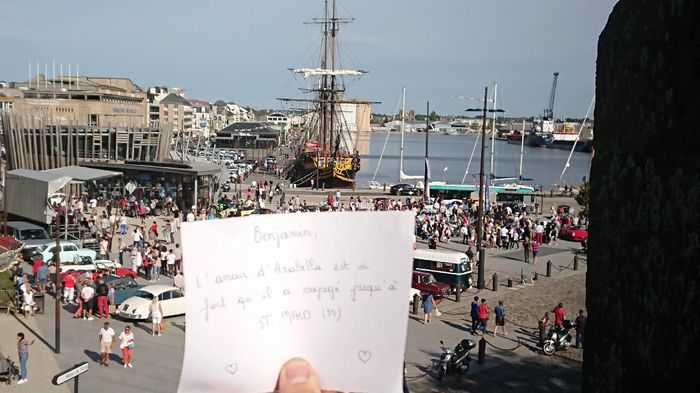 Benjamin,
L'amour d'Anabella est si
fort qu'il a voyagé jusqu'à
ST MALO (35)